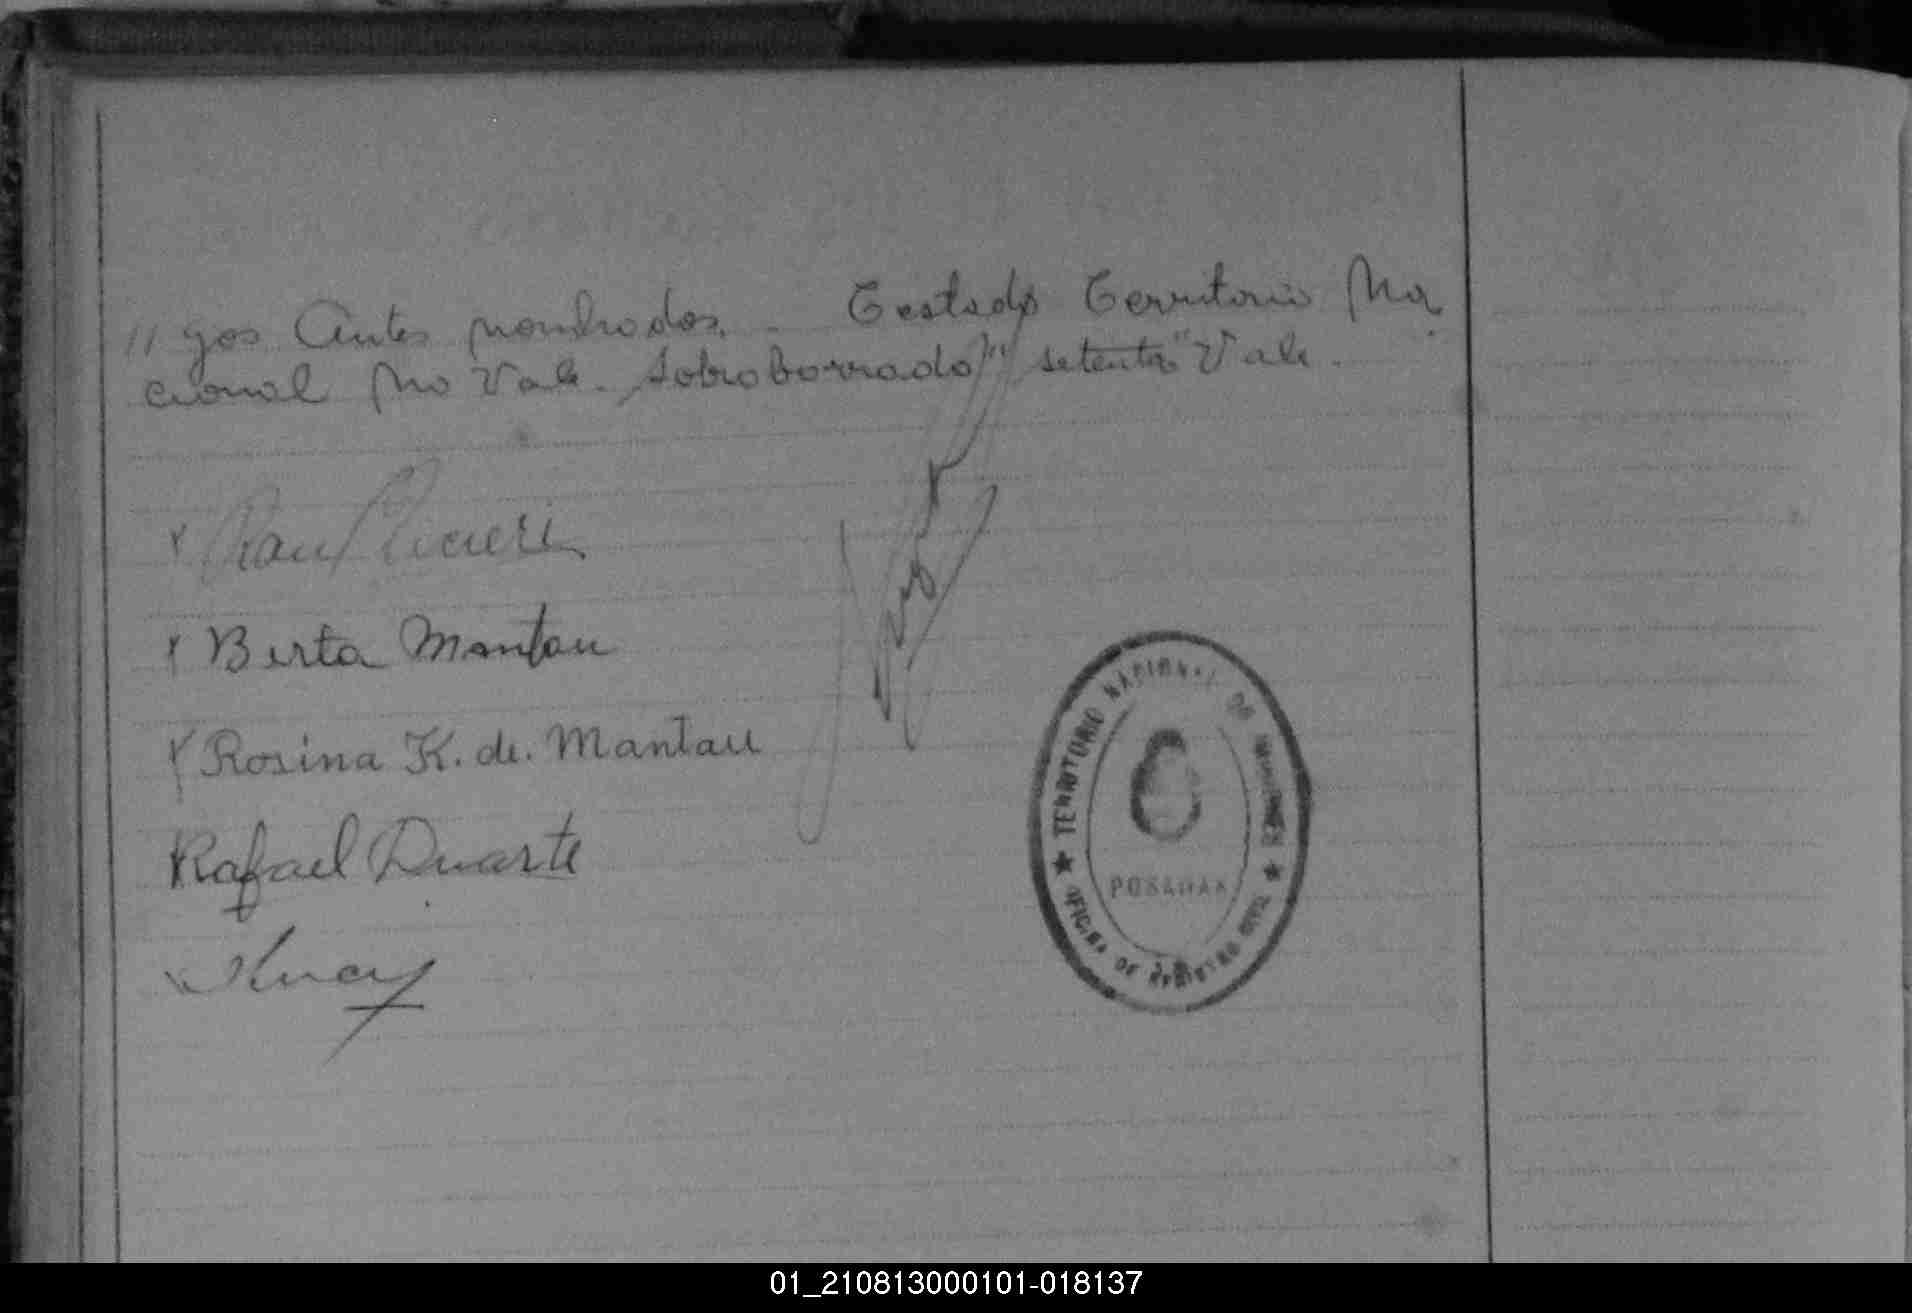 // gos Antes nombrados. - Testado Territorio Na
cional No Vale. Sobroborrado "setenta" Vale.
Berta Mantau
Rosina K. de. Mantau
Rafael Duarte
★ TERRITORIO NACIONAL DE MISIONES ★
POSADAS
OFICINA DE REGISTRO CIVIL
01_210813000101-018137